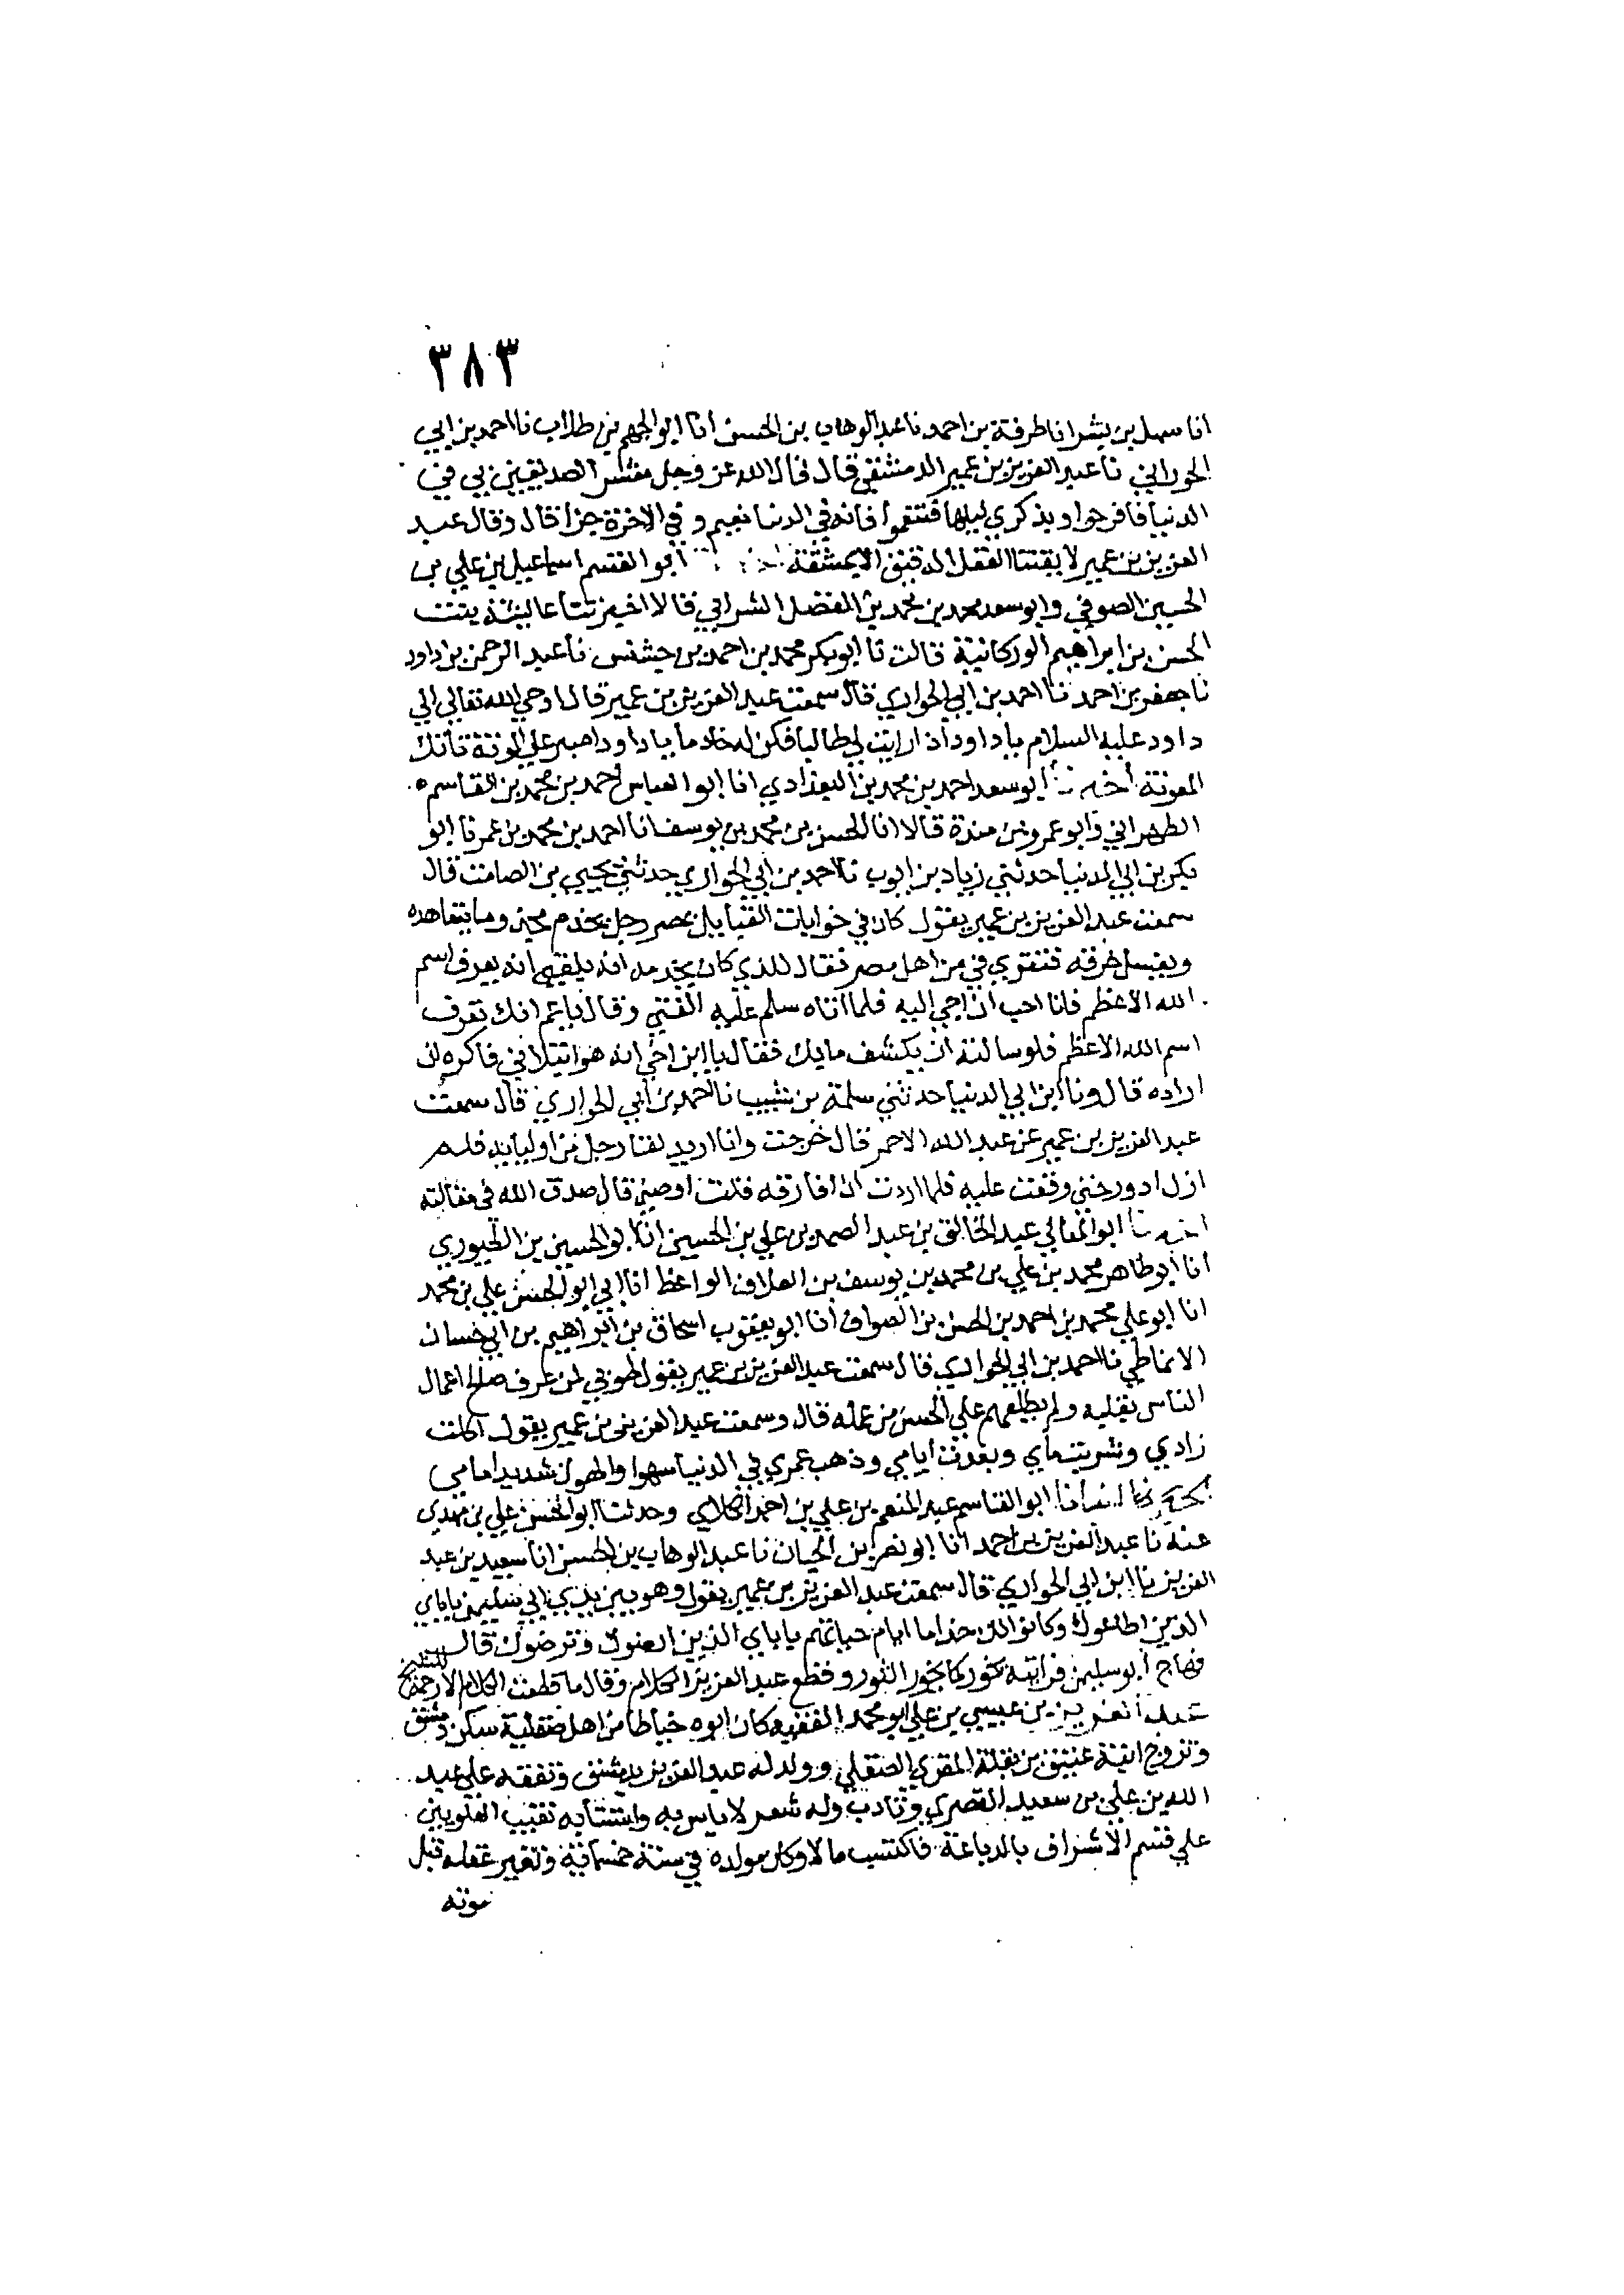 ٣٨٣
انا سهل بن بشر انا طرفة بن احمد نا عبد الوهاب بن الحسن انا ابو الجهم بن طلاب نا احمد بن ابي
الحواري نا عبد العزيز بن عمير الدمشقي قال قال الله عز وجل معشر الصديقين بي في
الدنيا فافرحوا وبذكري فتنعموا فانه في الدنيا نعيم وفي الاخرة جزا قال وقال عبد
العزيز بن عمير ابو القسم اسماعيل بن علي بن
الحسين الصوفي وابو سعد محمد بن محمد بن الفضل الشرابي قالا اخبرتنا عائشة بنت
الحسن بن ابراهيم الوركانية قالت نا ابو بكر محمد بن احمد بن جشنس نا عبد الرحمن بن داود
نا جعفر بن احمد نا احمد بن ابي الحواري قال سمعت عبد العزيز بن عمير قال اوحى الله تعالى الي
داود عليه السلام يا داود اذا رايت لي طالبا فكن له خادما يا داود اصبر علي المونة تاتك
المعونة أخبرنا ابو سعد احمد بن محمد بن البغدادي انا ابو العباس احمد بن محمد بن القاسم
الطهراني وابو عمرو بن مندة قالا انا الحسن بن محمد بن يوسف انا احمد بن محمد بن عمر نا ابو
بكر بن ابي الدنيا حدثني زياد بن ايوب نا احمد بن ابي الحواري حدثني يحيي بن الصامت قال
سمعت عبد العزيز بن عمير يقول كان في خرابات القبايل بمصر رجل يخدم ويتعاهده
ويغسل خرقه فتقرى فتى من اهل مصر فقال للذي كان يخدمه انه بلغني انه يعرف اسم
الله الاعظم فانا احب ان اجي اليه فلما اتاه سلم عليه الفتي وقال يا عم انك تعرف
اسم الله الاعظم فلو سالته ان يكشف ما بك فقال يا ابن اخي انه هو ابتلاني فاكره ان
اراده قال ونا ابن ابي الدنيا حدثني سلمة بن شبيب نا احمد بن ابي الحواري قال سمعت
عبد العزيز بن عمير عن عبد الله الاحمر قال خرجت وانا اريد لقا رجل من اوليايه فلم
ازل ادور حتى وقعت عليه فلما اردت ان افارقه قلت اوصني قال صدق الله في مقالته
اخبرنا ابو المعالي عبد الخالق بن عبد الصمد بن علي بن الحسين انا ابو الحسين بن الطيوري
انا أبو طاهر محمد بن علي بن محمد بن يوسف بن العلاف الواعظ انا ابي ابو الحسن علي بن محمد
انا ابو علي محمد بن احمد بن الحسن بن الصواف انا ابو يعقوب اسحاق بن ابراهيم بن ابي حسان
الانماطي نا احمد بن ابي الحواري قال سمعت عبد العزيز بن عمير يقول طوبي لمن عرف صالح اعمال
الناس بقلبه ولم يطلعهم علي الحسن من عمله قال وسمعت عبد العزيز بن عمير يقول اكلت
زادي وشربت ماي ونفدت ايامي وذهب عمري في الدنيا سهوا والهول شديد امامي
انبانا ابو القاسم عبد المنعم بن علي بن احمد الكلابي وحدثنا ابو الحسن علي بن مهدي
عنه نا عبد العزيز بن احمد انا ابو نصر بن الجبان نا عبد الوهاب بن الحسن انا سعيد بن عبد
العزيز نا ابن ابي الحواري قال سمعت عبد العزيز بن عمير يقول وهو بين يدي ابي سليمن باباي
الذين اطاعوك وكانوا لك خداما ايام حياتهم باباي الذين وترضوك قال
فهاج أبو سليمن فرايته يخور كما يخور الثور وقطع عبد العزيز الكلام وقال ما قطعت الكلام الا رحمة للشيخ
عبد العزيز بن عيسي بن علي ابو محمد الفقيه كان ابوه خياطا من اهل صقلية سكن دمشق
وتزوج ابنة عتيق بن المقري الصقلي وولد له عبد العزيز بدمشق وتفقه علي عبد
الله بن علي بن سعيد القصري وتادب وله شعر لا باس به واستنابه نقيب العلويين
علي قسم الاشراف بالدباغة فاكتسب مالا وكان مولده في سنة خمسمائة وتغير عقله قبل
موته